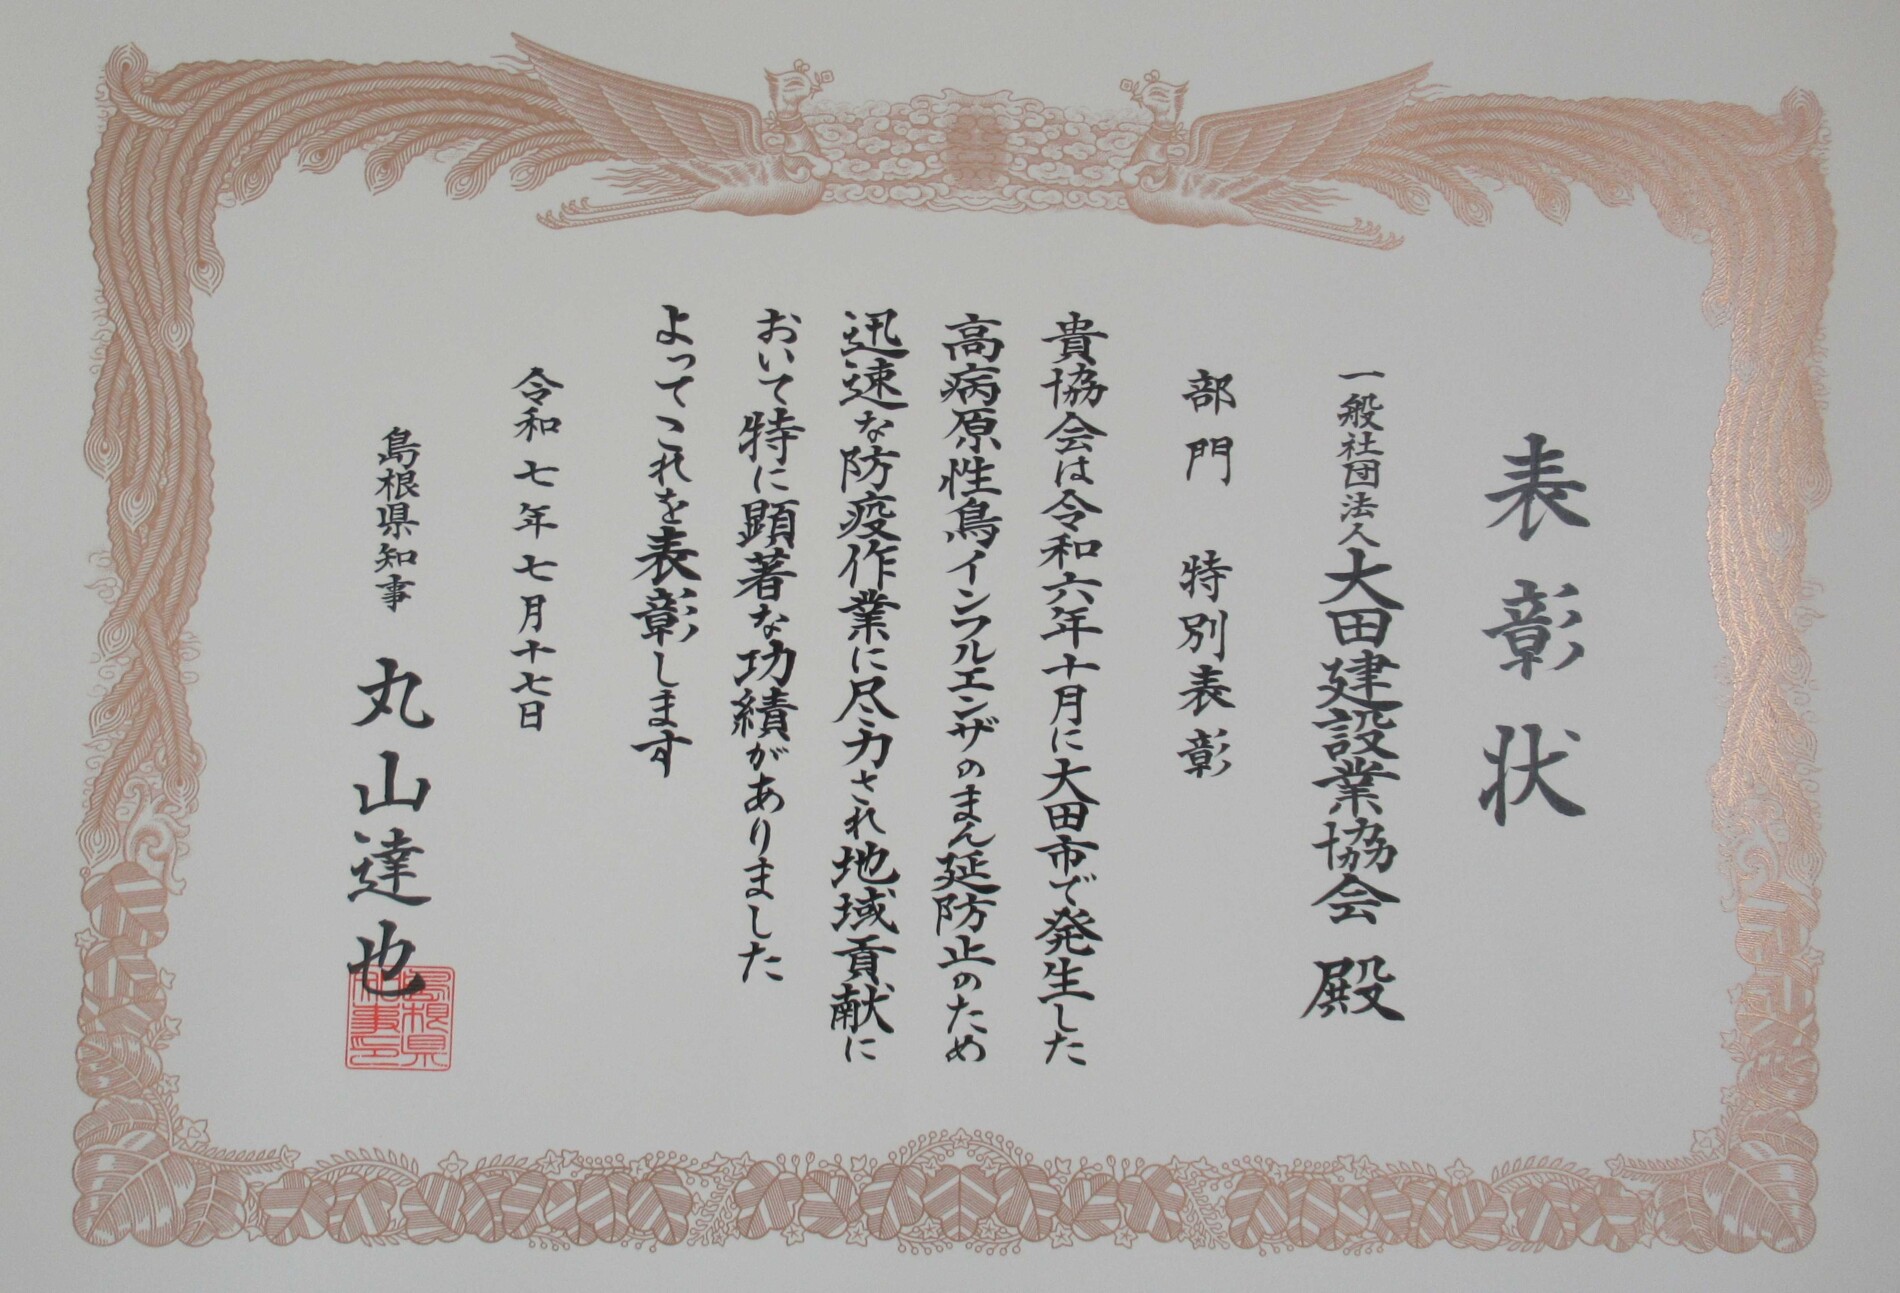 表彰状
一般社団法人大田建設業協会 殿
部門 特別表彰
貴協会は令和六年十月に大田市で発生した
高病原性鳥インフルエンザのまん延防止のため
迅速な防疫作業に尽力され地域貢献に
おいて特に顕著な功績がありました
よってこれを表彰します
令和七年七月十七日
島根県知事 丸山達也
島根県
知事印